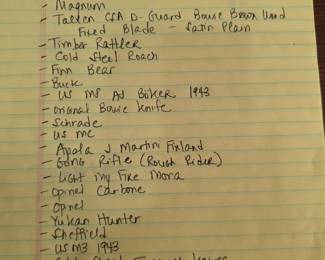 - Magnum
- Tallen CSA D-Guard Bowie Brown Wood
Fixed Blade - Satin Plain
- Timber Rattler
- Cold Steel Roach
- Finn Bear
- Buck
- US M3 AJ Biker 1943
- original Bowie Knife
- Schrade
- US MC
- Apala J Martini Finland
- Long Rifle (Rough Rider)
- Light My Fire Mora
- Opinel Carbone
- Opinel
- Yukan Hunter
- Sheffield
- US M3 1943